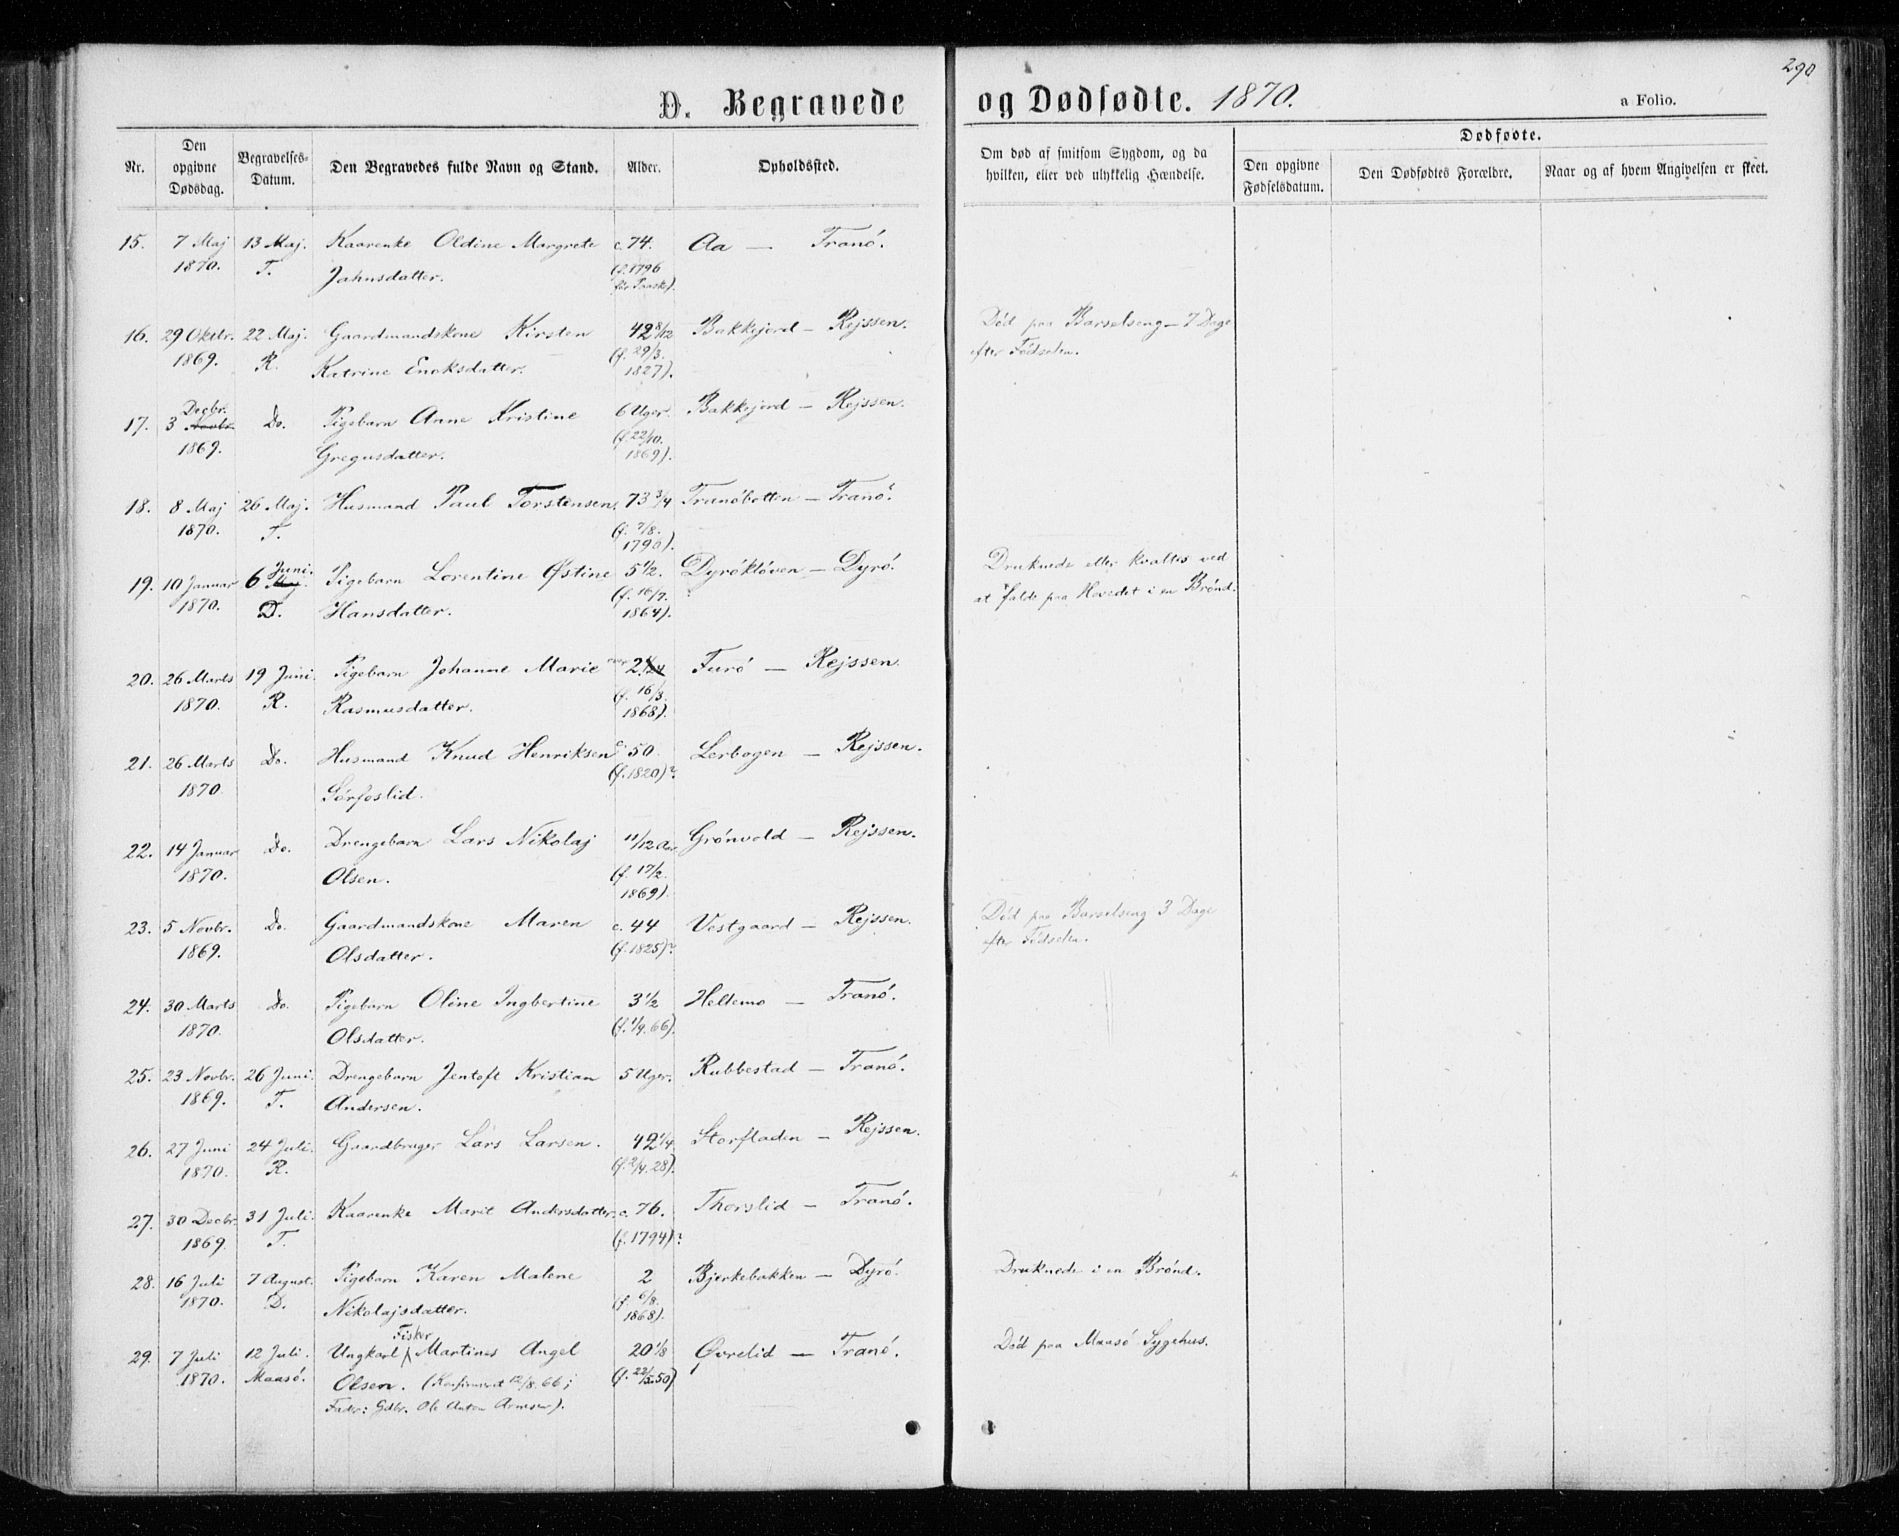 290
D. Begravede og Dødfødte. 1870. a Folio.
Nr. Den opgivne Dødsdag. Begravelses-Datum. Den Begravedes fulde Navn og Stand. Alder. Opholdssted. Om død af smitsom Sygdom, og da hvilken, eller ved ulykkelig Hændelse. Dødfødte. Den opgivne Fødselsdatum. Den Dødfødtes Forældre. Naar og af hvem Angivelsen er skeet.
15. 7 Maj 13 Maj. Kaarenke Oldine Margrete c. 74. Aa — Tranö.
1870. T. Jahnsdatter. (f. 1796
før Paaske).
16. 29 Oktbr. 22 Maj. Gaardmandskone Kirsten 42 8/12 Bakkejord — Rejssen. Död paa Barselseng 7 Dage
1869. R. Katrine Enoksdatter. (f. 29/3. 1827). efter Födselen.
17. 3 Decbr. Novbr. Do. Pigebarn Anne Kristine 6 Uger. Bakkejord — Rejssen.
1869. Gregusdatter. (f. 22/10. 1869).
18. 8 Maj 26 Maj. Husmand Paul Torstensen. 73 3/4 Tranöbotten — Tranö.
1870. T. (f. 7/8. 1790).
19. 10 Januar 6 Juni. Maj Pigebarn Lorentine Østine 5 1/2. Dyröklöven — Dyrö. Druknede eller kvaltes ved
1870. D. Hansdatter. (f. 16/7. 1864). at falde paa Hovedet i en Brönd.
20. 26 Marts 19 Juni. Pigebarn Johanne Marie 2 Furö — Rejssen.
1870. R. Rasmusdatter. (f. 16/3. 1868).
21. 26 Marts Do. Husmand Knud Henriksen c. 50. Lerbogen — Rejssen.
1870. Sörfoslid. (f. 1820)?
22. 14 Januar Do. Drengebarn Lars Nikolaj 11/12 Aar Grönvold — Rejssen.
1870. Olsen. (f. 17/2. 1869).
23. 5 Novbr. Do. Gaardmandskone Maren c. 44 Vestgaard — Rejssen. Död paa Barselseng 3 Dage
1869. Olsdatter. (f. 1825)? efter Födselen.
24. 30 Marts Do. Pigebarn Oline Ingbertine 3 1/2 Heltemo — Tranö.
1870. Olsdatter. (f. 1/9. 66).
25. 23 Novbr. 26 Juni. Drengebarn Jentoft Kristian 5 Uger. Rubbestad — Tranö.
1869. T. Andersen.
26. 27 Juni 24 Juli. Gaardbruger Lars Larsen. 42 1/4. Storfladen — Rejssen.
1870. R. (f. 2/4. 28).
27. 30 Decbr. 31 Juli. Kaarenke Marit Andersdatter. c. 76. Thorslid — Tranö.
1869. T. (f. 1794)?
28. 16 Juli 7 August. Pigebarn Karen Malene 2 Bjerkebakken — Dyrö. Druknede i en Brönd.
1870. D. Nikolajsdatter. (f. 6/8. 1868).
29. 7 Juli 12 Juli. Ungkarl Fisker Martines Angel 20 1/8 Øvrelid — Tranö. Död paa Maasö Sygehus.
1870. Maasö. Olsen. (Konfirmeret 12/8. 66; (f. 22/5. 50)
Fader: Gdbr. Ole Anton Arnesen).